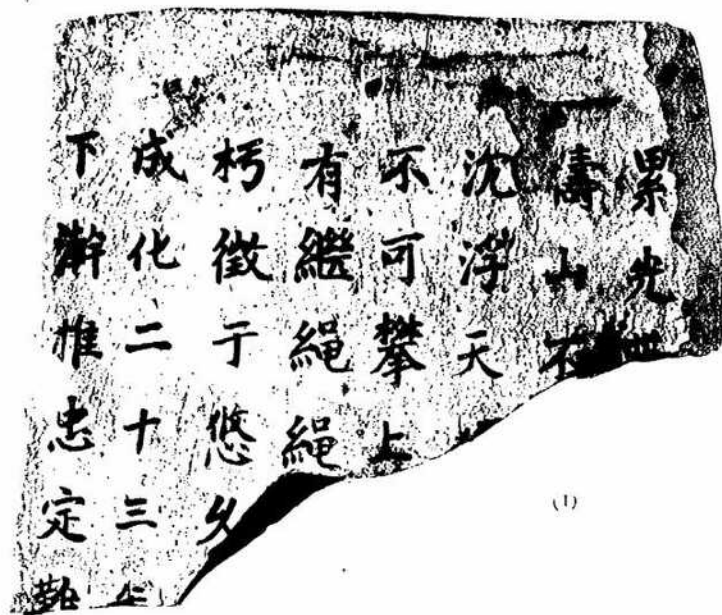 累光
壽山不
沈浮天
不可攀上
有繼繩繩
朽徵于悠久
成化二十三年
下澣推忠定難
(1)